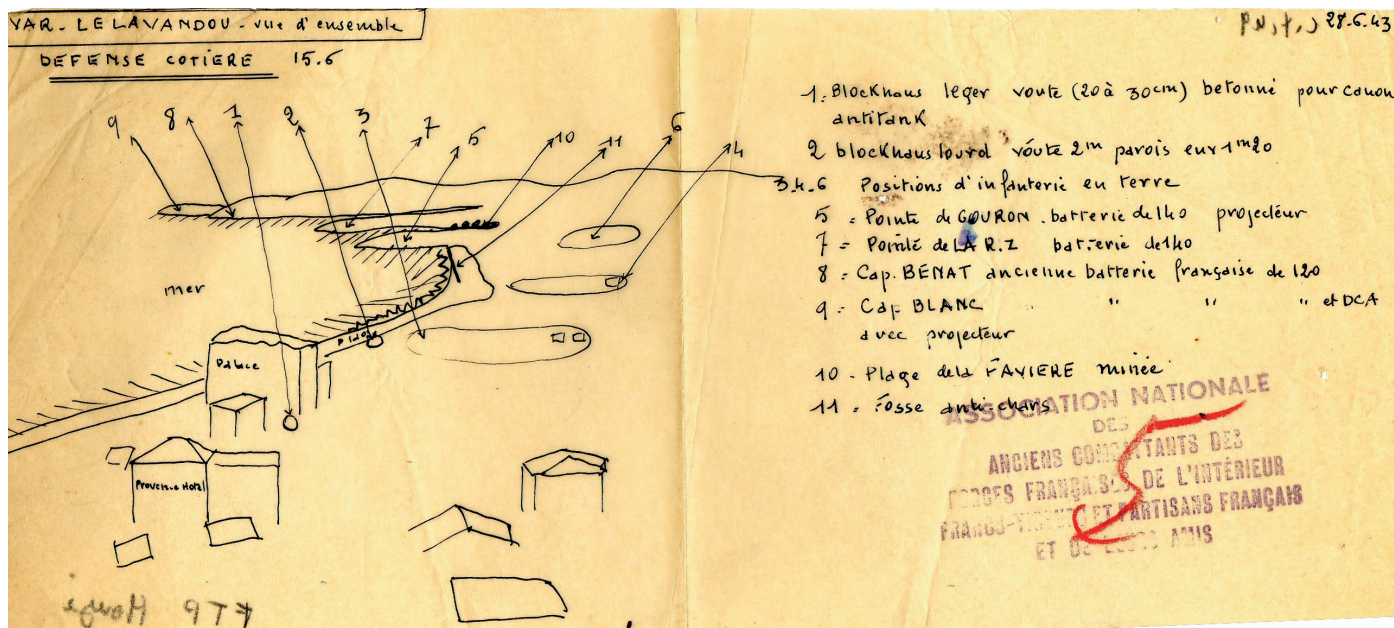 VAR. LE LAVANDOU - vue d'ensemble
DEFENSE COTIERE 15.6
28.6.43
9 8 1 2 3 7 5 10 11 6 4
mer
Plage
Palace
Provence Hotel
1. Blockhaus leger voute (20 à 30cm) betonné pour canon
antitank
2 blockhaus lourd voute 2m parois env 1m20
3.4.6 Positions d'infanterie en terre
5 = Pointe de GOURON. batterie de 140 projecteur
7 = Pointe de LA R.Z batterie de 140
8 = Cap. BENAT ancienne batterie française de 120
9 = Cap BLANC " " " et DCA
avec projecteur
10 - Plage de la FAVIERE minée
11 = Fosse antichars
ASSOCIATION NATIONALE
DES
ANCIENS COMBATTANTS DES
FORCES FRANÇAISES DE L'INTÉRIEUR
FRANCS-TIREURS ET PARTISANS FRANÇAIS
ET DE LEURS AMIS